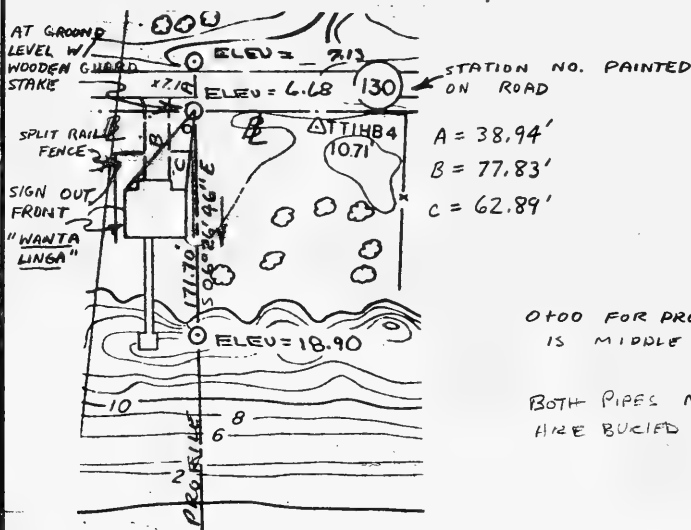 AT GROUND
LEVEL W/
WOODEN GUARD
STAKE
SPLIT RAIL
FENCE
SIGN OUT
FRONT
"WANTA
LINGA"
ELEV = 7.13
x7.1
ELEV = 6.68
130
STATION NO. PAINTED
ON ROAD
TT1HB4
10.71'
A
B
C
A = 38.94'
B = 77.83'
C = 62.89'
171.70'
S 06°26'46" E
ELEV = 18.90
0+00 FOR PRO
IS MIDDLE
BOTH PIPES
ARE BURIED
10
8
6
2
PROFILE